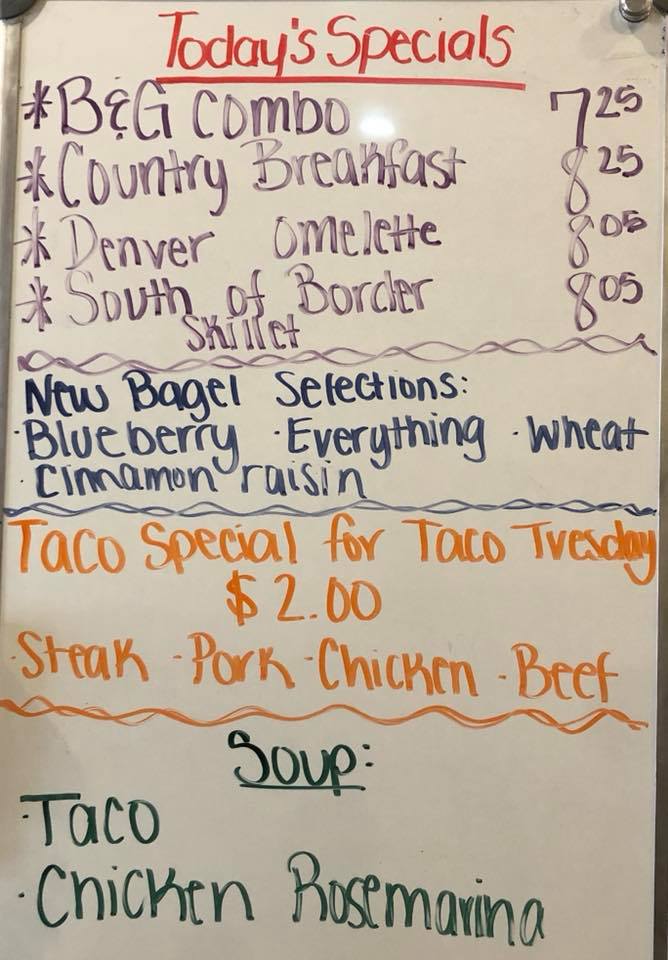 Today's Specials
*B&G Combo 7 25
*Country Breakfast 8 25
*Denver Omelette 8 05
*South of Border 8 05
Skillet
New Bagel Selections:
·Blueberry ·Everything ·Wheat
·Cinnamon raisin
Taco Special for Taco Tuesday
$2.00
·Steak ·Pork ·Chicken ·Beef
Soup:
·Taco
·Chicken Rosemarina